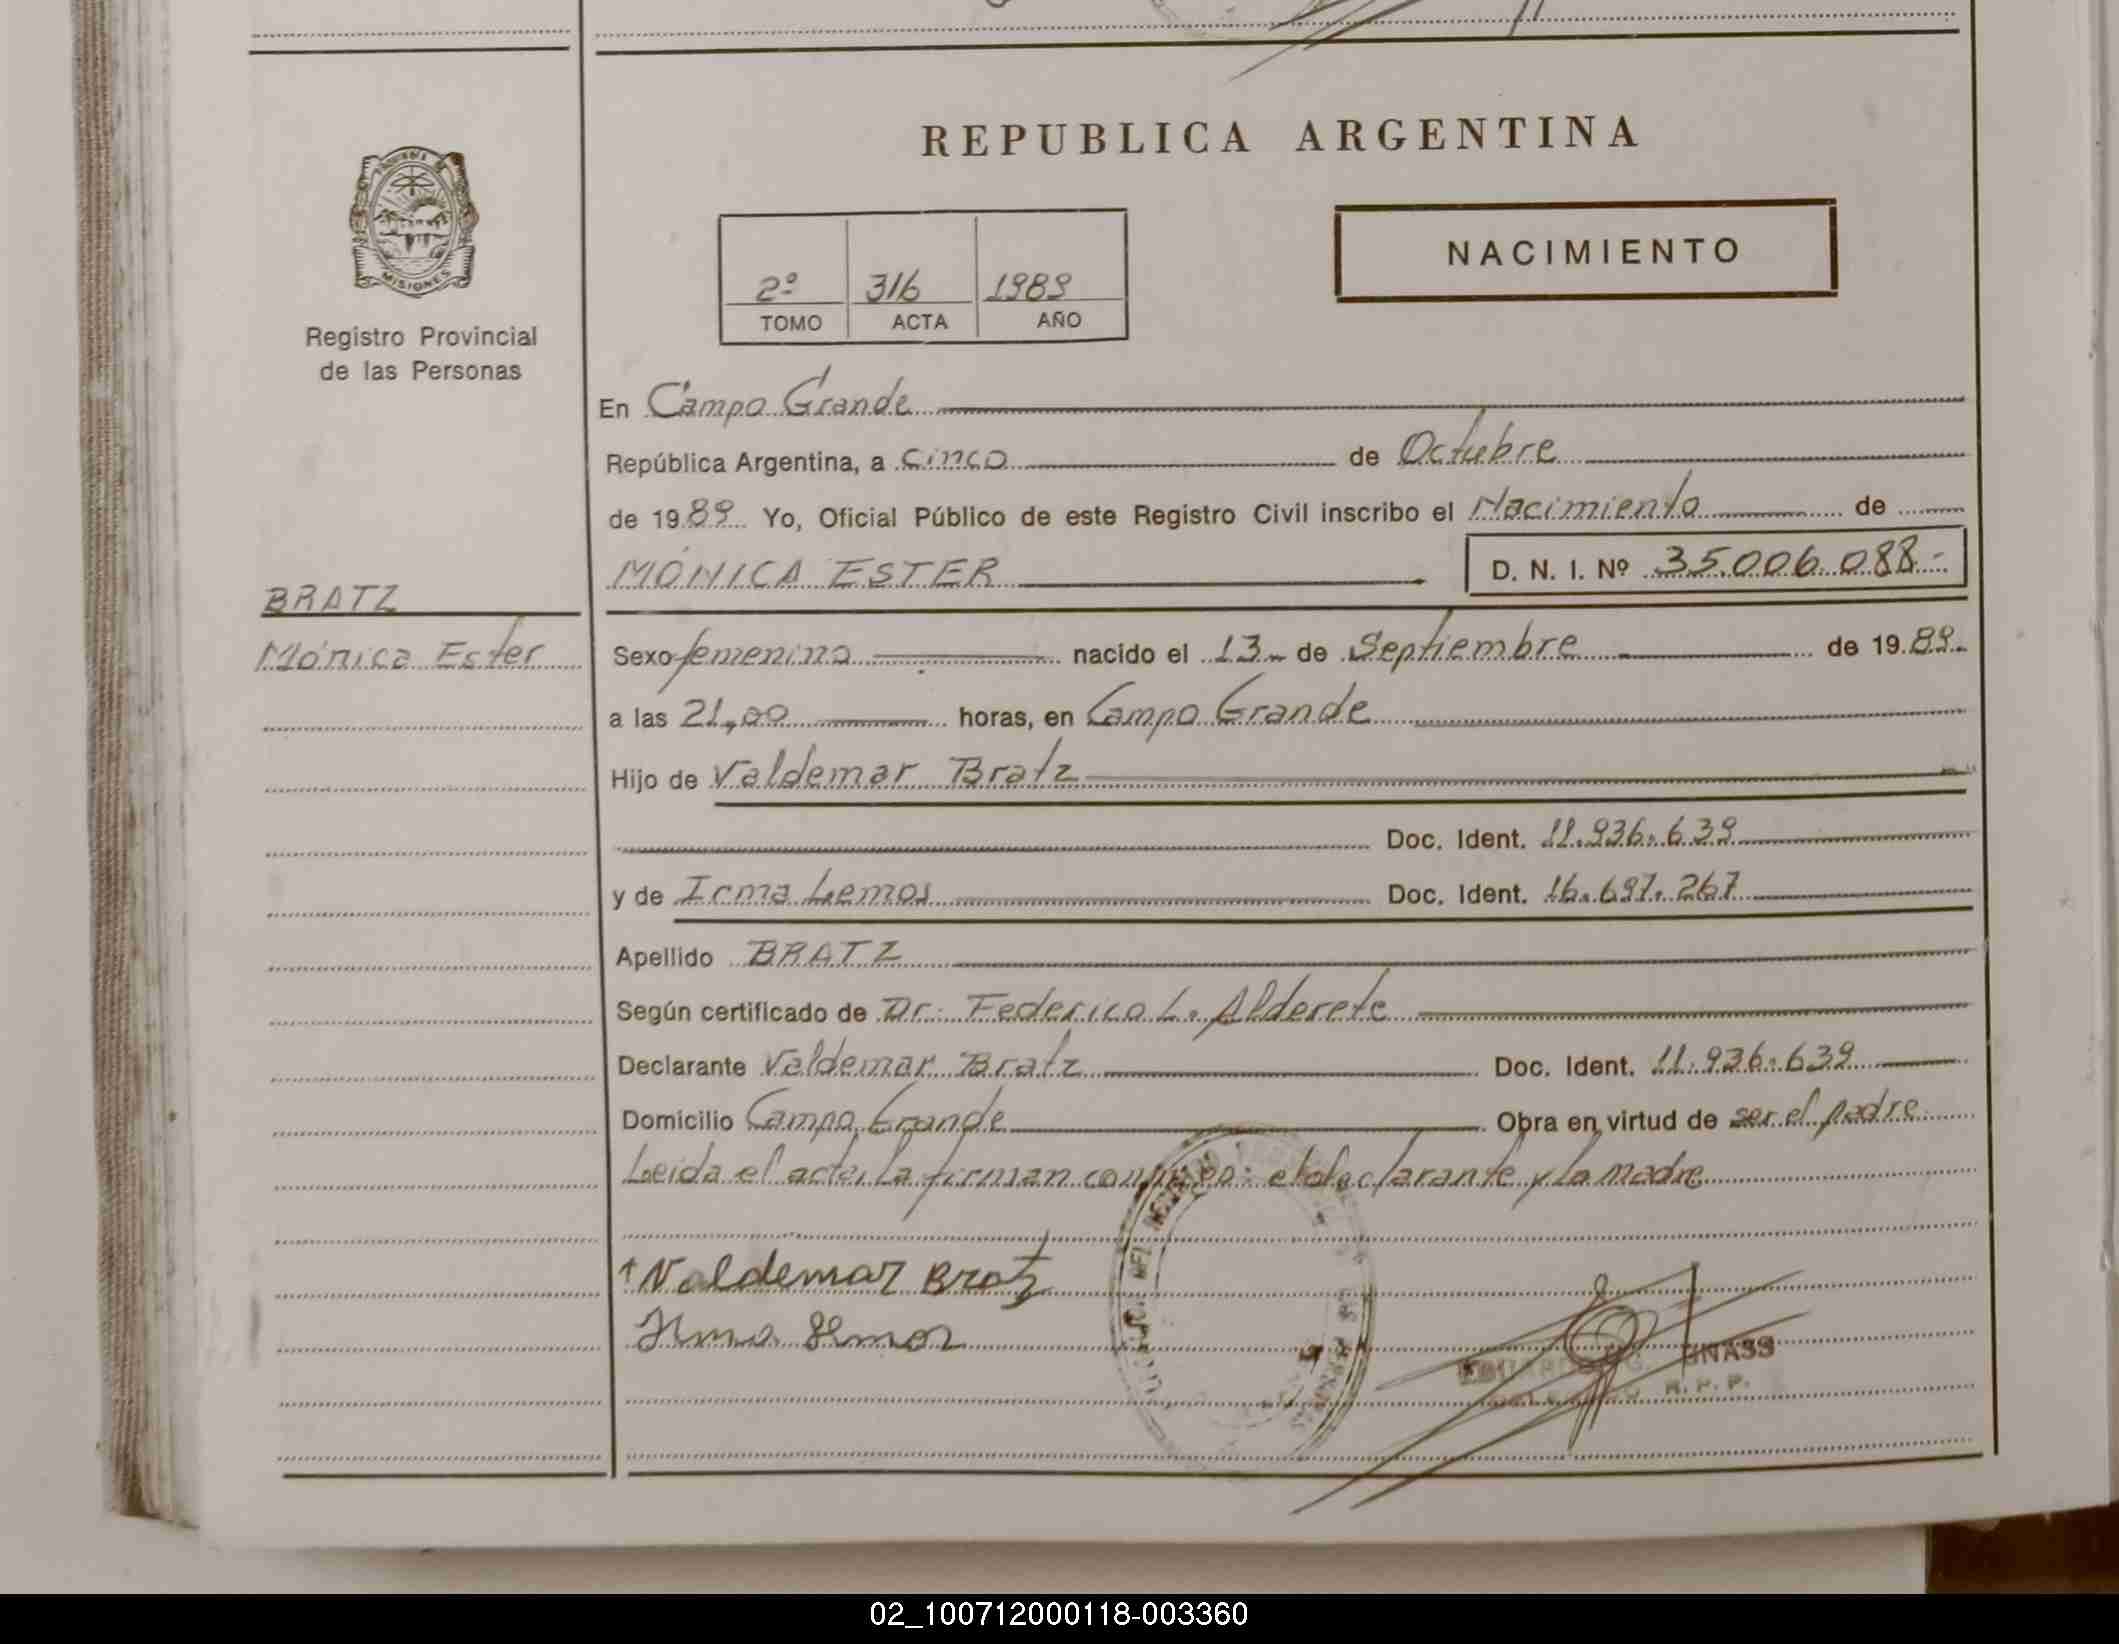 REPUBLICA ARGENTINA
NACIMIENTO
2º 316 1989
TOMO ACTA AÑO
MISIONES
Registro Provincial
de las Personas
En Campo Grande
República Argentina, a cinco de Octubre
de 1989 Yo, Oficial Público de este Registro Civil inscribo el Nacimiento de
MÓNICA ESTER D. N. I. Nº 35.006.088.-
BRATZ
Mónica Ester
Sexo femenino nacido el 13 de Septiembre de 1989.
a las 21,00 horas, en Campo Grande
Hijo de Valdemar Bratz
Doc. Ident. 11.936.639
y de Irma Lemos Doc. Ident. 16.697.267
Apellido BRATZ
Según certificado de Dr. Federico L. Alderete
Declarante Valdemar Bratz Doc. Ident. 11.936.639
Domicilio Campo Grande Obra en virtud de ser el padre
Leida el acta, la firman conmigo: el declarante y la madre
Valdemar Bratz
Irma Lemos
R. P. P.
02_100712000118-003360